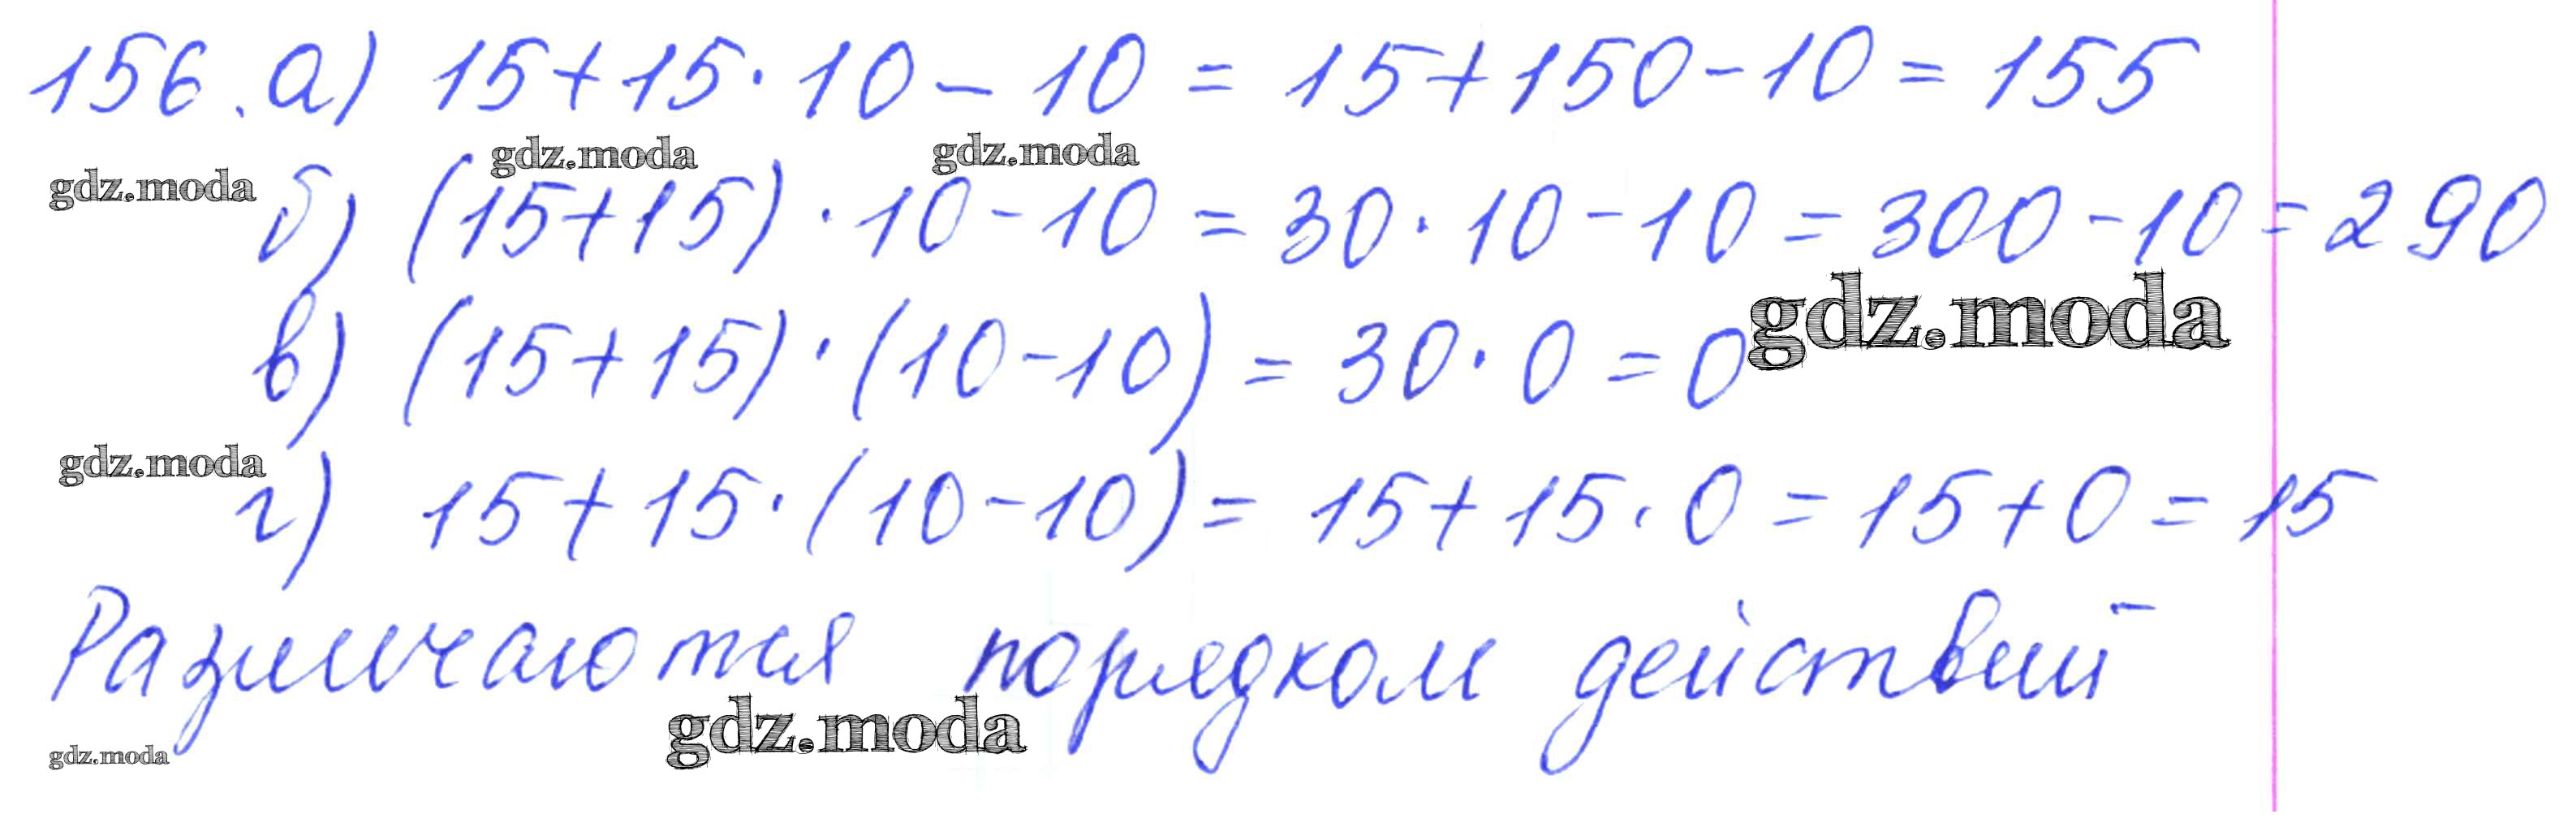 156. а) 15+15·10-10 = 15+150-10 = 155
gdz.moda gdz.moda
gdz.moda
б) (15+15)·10-10 = 30·10-10 = 300-10 = 290
gdz.moda
в) (15+15)·(10-10) = 30·0 = 0
gdz.moda
г) 15+15·(10-10) = 15+15·0 = 15+0 = 15
Различаются порядком действий
gdz.moda
gdz.moda